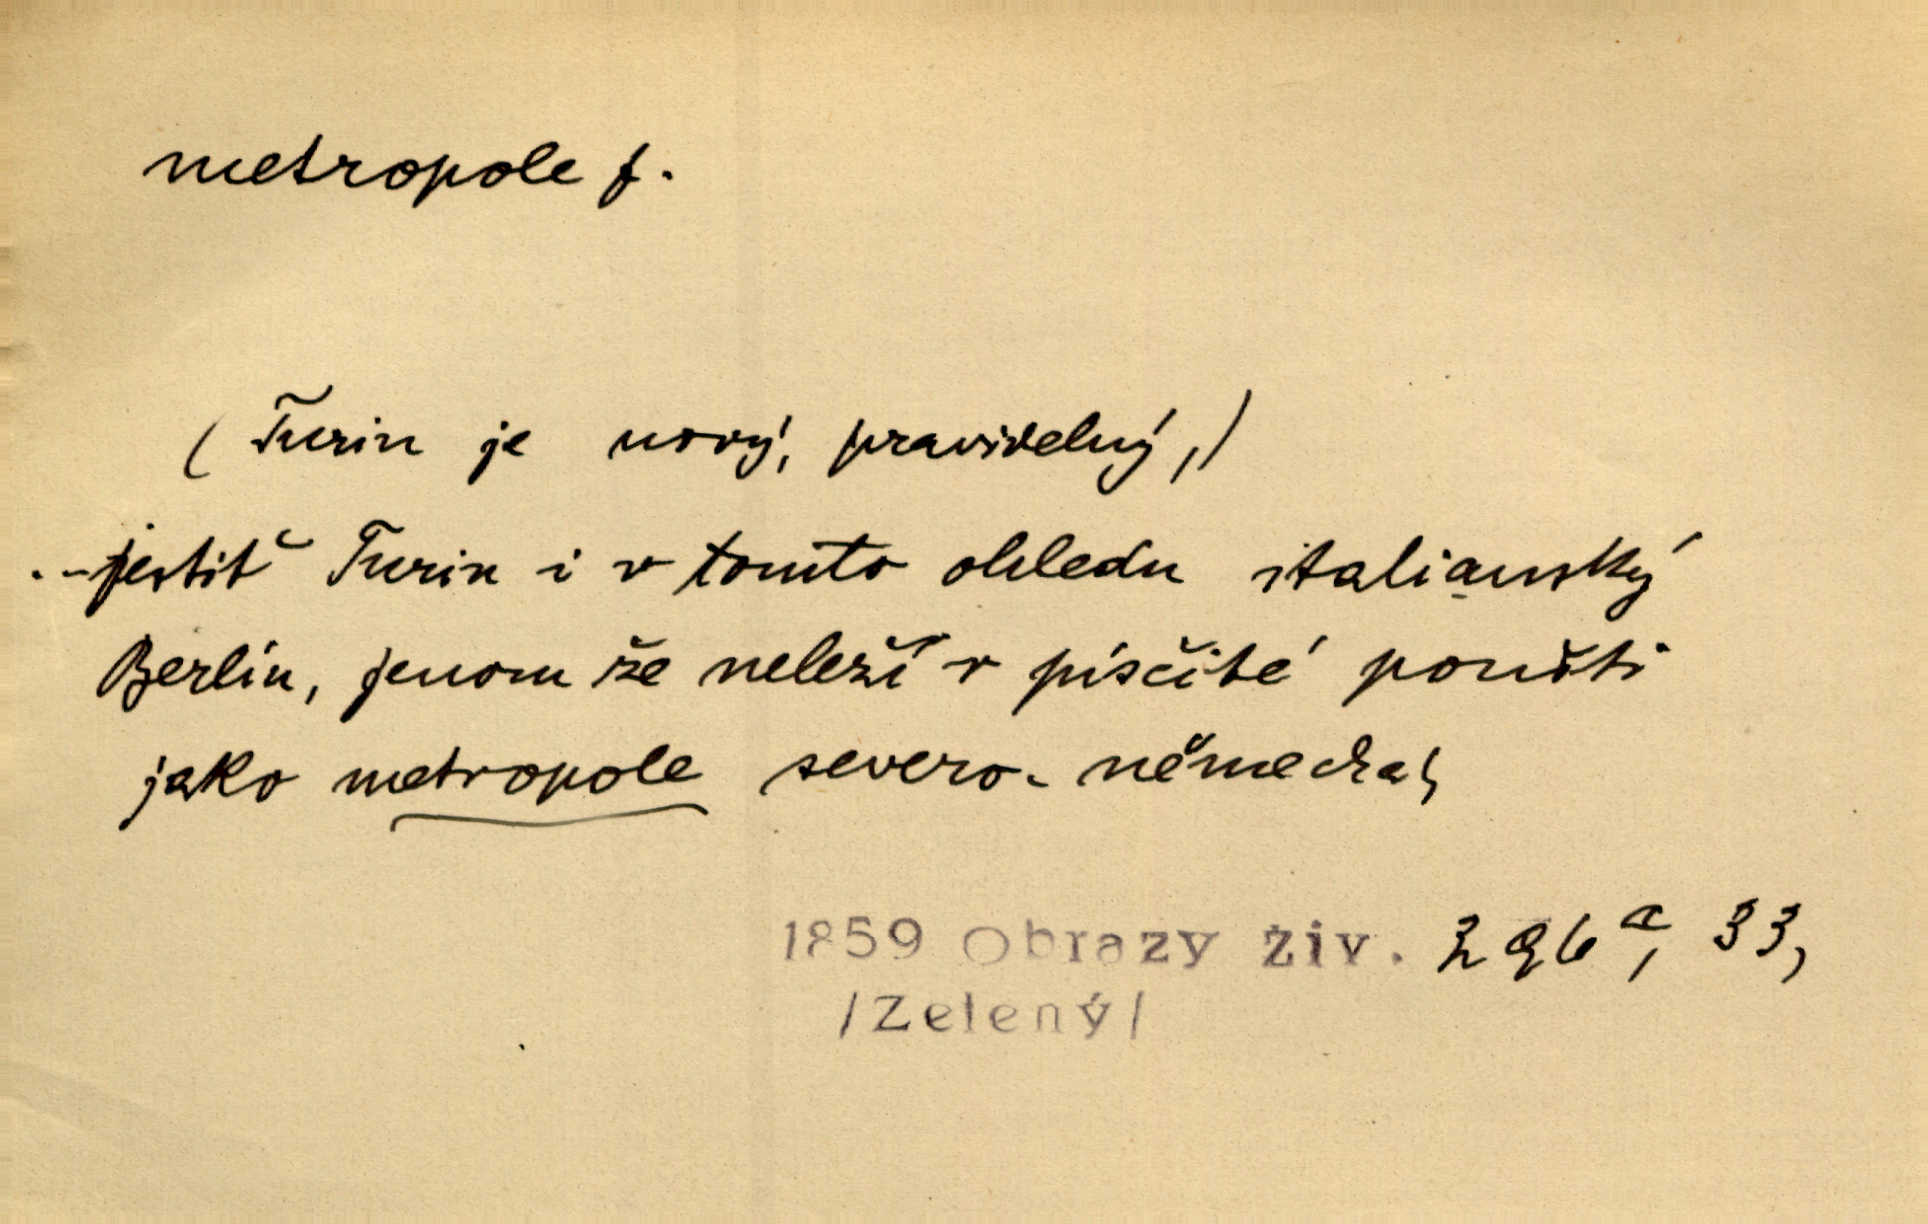 metropole f.
(Turin je nový, pravidelný,)
..-jestiť Turin i v tomto ohledu italianský
Berlín, jenom že neleží v písčité poušti
jako metropole severo-německá,
1859 Obrazy živ. 296a, 33,
/Zelený/